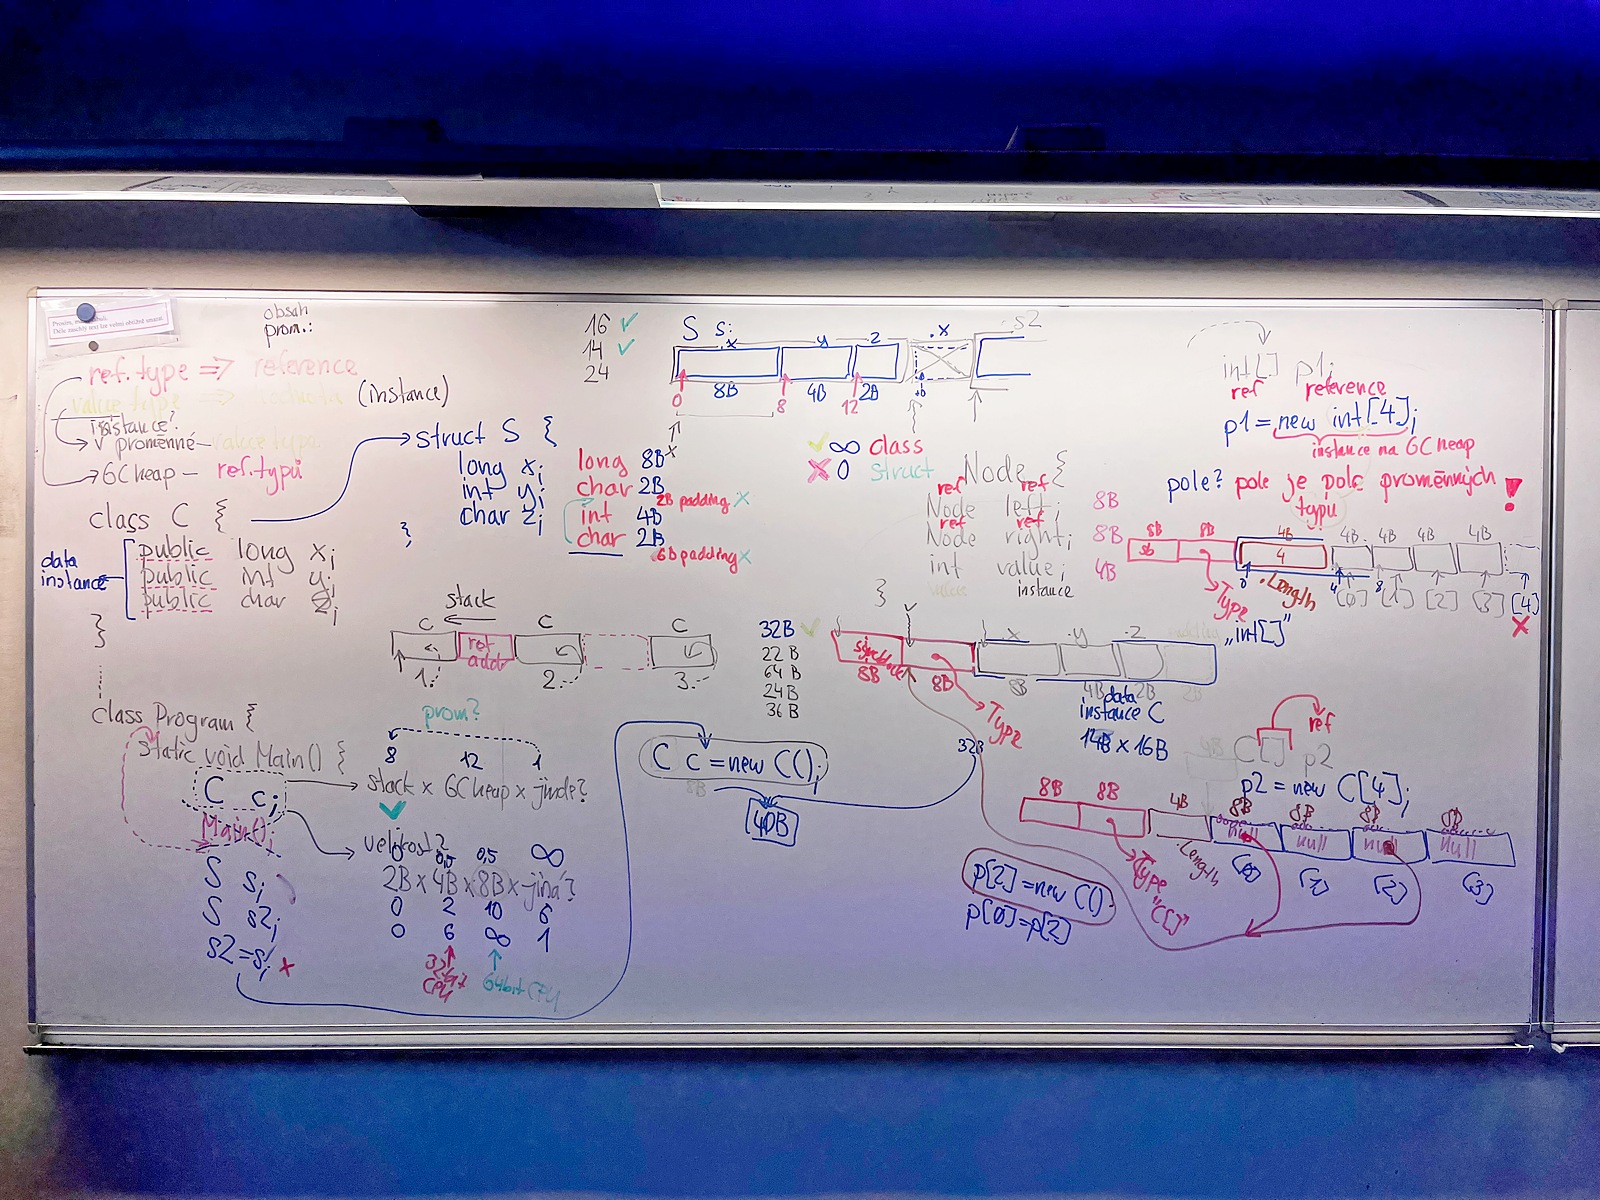 obsah
prom.:
ref. type => reference
value type => hodnota (instance)
instance?
v proměnné – value typu
GC heap – ref. typů
class C {
public long x;
public int y;
public char z;
}
data
instance
class Program {
static void Main() {
C c;
Main();
S s;
S s2;
s2=s; x
struct S {
long x;
int y;
char z;
}
long 8B
char 2B
2B padding x
int 4B
char 2B
6B padding x
16 ✓
14 ✓
24
S s: .x y .z .x s2
8B 4B 2B
0 8 12
∞ class
x 0 struct
stack
C C C
ret
addr
1. 2. 3.
prom?
8 12 1
stack x GC heap x jinde?
velikost?
0 0,5 0,5 ∞
2B x 4B x 8B x jiná?
0 2 10 6
0 6 ∞ 1
32bit
CPU
64bit CPU
C c = new C();
8B
40B
32B
Node {
ref ref
Node left; 8B
ref ref
Node right; 8B
int value; 4B
value instance
}
32B ✓
22 B
64 B
24 B
36 B
syncblock .x .y .z
8B 8B 8B 4B 2B 2B
Type
data
instance C
14B x 16B
int[] p1;
ref reference
p1 = new int[4];
instance na GC heap
pole? pole je pole proměnných !
typu
8B 8B 4B 4B 4B 4B 4B
sb 4
0 .Length 4 8
[0] [1] [2] [3] [4]
x
Type
"int[]"
ref
C[] p2
p2 = new C[4];
8B 8B 4B 8B 8B 8B 8B
null null null null
.Length [0] [1] [2] [3]
Type
"C[]"
p[2] = new C();
p[0]=p[2]